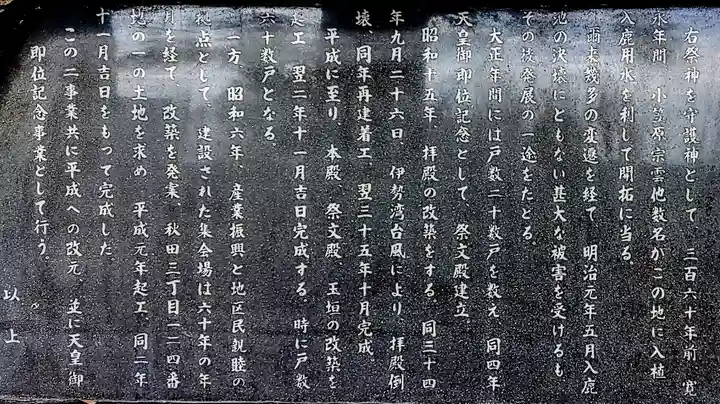 右祭神を守護神として 三百六十年前 寛
永年間 小笠原宗雲他数名がこの地に入植
入鹿用水を利して開拓に当る。
爾来幾多の変遷を経て 明治元年五月入鹿
池の決壊にともない甚大な被害を受けるも
その後発展の一途をたどる。
大正年間には戸数二十数戸を数え、同四年
天皇御即位記念として、祭文殿建立。
昭和十五年、拝殿の改築をする。同三十四
年九月二十六日、伊勢湾台風により 拝殿倒
壊、同年再建着工、翌三十五年十月完成、
平成に至り 本殿 祭文殿、玉垣の改築を
起工 翌二年十一月吉日完成する。時に戸数
六十数戸となる。
一方、昭和六年、産業振興と地区民親睦の
拠点として、建設された集会場は六十年の年
月を経て、改築を発案、秋田三丁目一二四番
地の一の土地を求め 平成元年起工、同二年
十一月吉日をもって完成した
この二事業共に平成への改元、並に天皇御
即位記念事業として行う。
以上